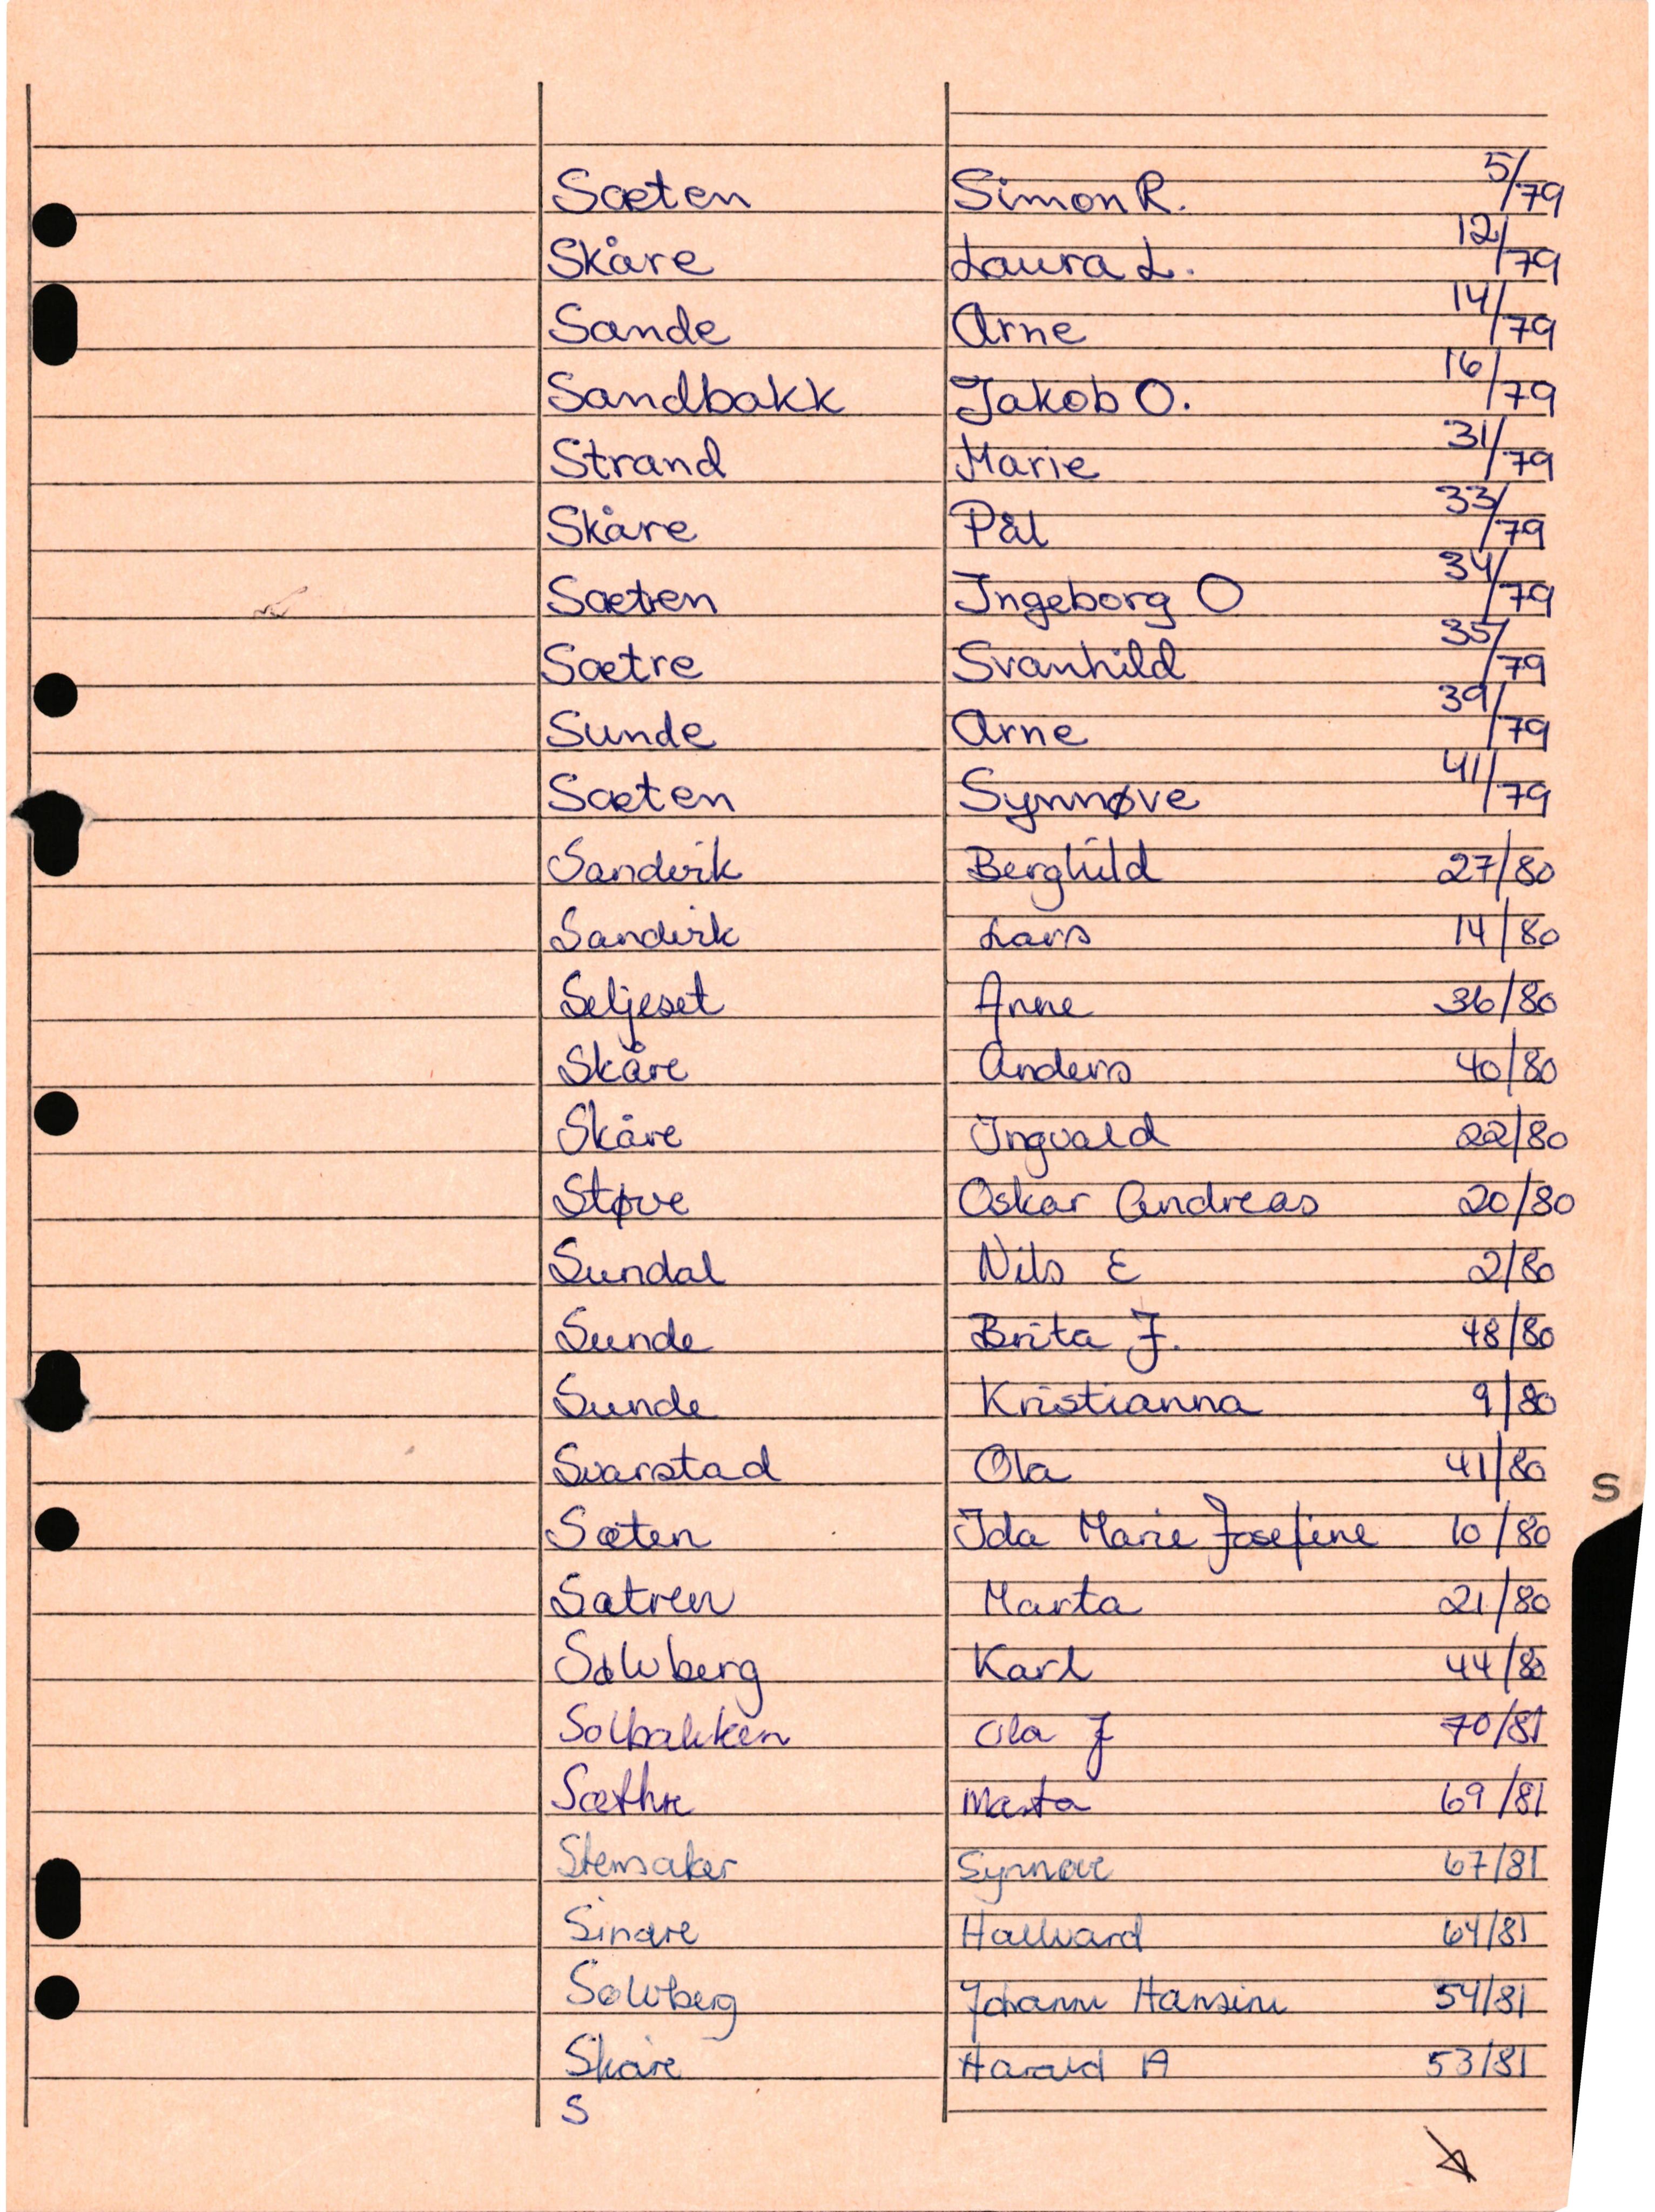 Sæten Simon R. 5/79
Skåre Laura L. 12/79
Sande Arne 14/79
Sandbakk Jakob O. 16/79
Strand Marie 31/79
Skåre Pål 33/79
Sætren Ingeborg O 34/79
Sætre Svanhild 35/79
Sunde Arne 39/79
Sæten Synnøve 41/79
Sandvik Berghild 27/80
Sandvik Lars 14/80
Seljeset Anne 36/80
Skåre Anders 40/80
Skåre Ingvald 22/80
Støve Oskar Andreas 20/80
Sundal Nils E 2/80
Sunde Brita J. 48/80
Sunde Kristianna 9/80
Svarstad Ola 41/80
S
Sæten Ida Marie Josefine 10/80
Sætren Marta 21/80
Sølvberg Karl 44/80
Solbakken Ola J 70/81
Sæthre Marta 69/81
Stensaker Synnøve 67/81
Sindre Hallvard 64/81
Sølvberg Johanne Hansine 54/81
Skåre Harald A 53/81
S